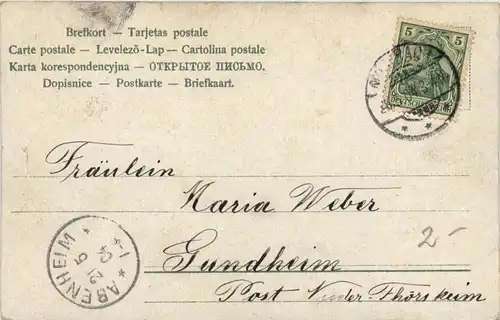 Brefkort — Tarjetas postale
Carte postale — Levelező-Lap — Cartolina postale
Karta korespondencyjna — ОТКРЫТОЕ ПИСЬМО.
Dopisnice — Postkarte — Briefkaart.
5 5
Fräulein
Maria Weber
Gundheim
Post Nieder-Flörsheim
2-
ABENHEIM